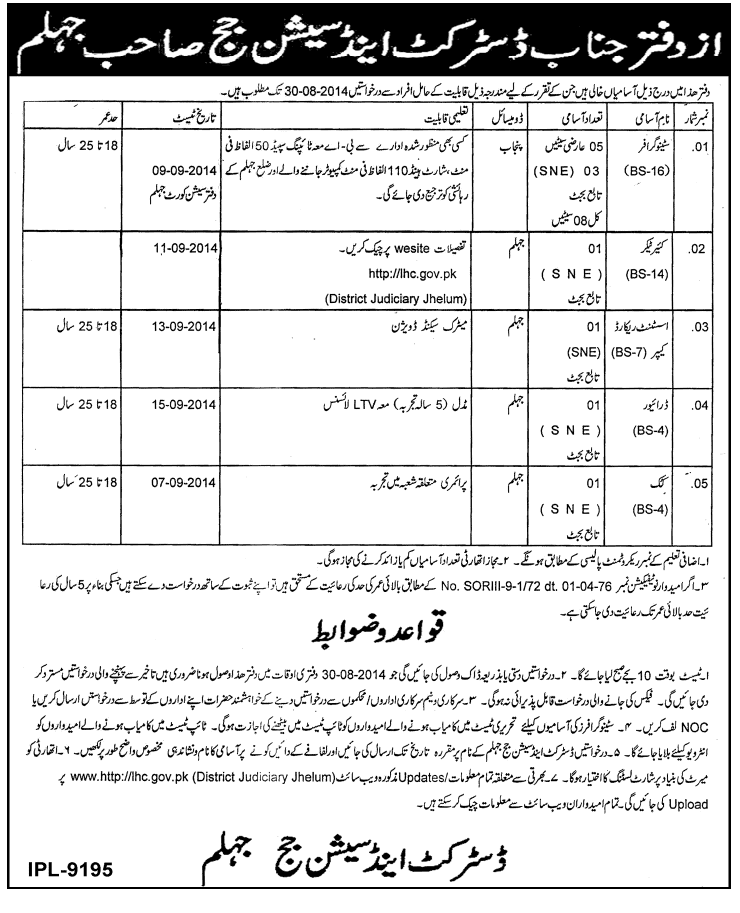 از دفتر جناب ڈسٹرکٹ اینڈ سیشن جج صاحب جہلم
دفتر ھذا میں درج ذیل آسامیاں خالی ہیں جن کے تقرر کے لیے مندرجہ ذیل قابلیت کے حامل افراد سے درخواستیں 30-08-2014 تک مطلوب ہیں۔
نمبر شمار نام آسامی تعداد آسامی ڈومیسائل تعلیمی قابلیت تاریخ ٹیسٹ حد عمر
01. سٹینوگرافر 05 عارضی سیٹیں پنجاب کسی بھی منظور شدہ ادارے سے بی-اے معہ ٹائپنگ سپیڈ 50 الفاظ فی 18 تا 25 سال
(BS-16) 03 (SNE) منٹ، شارٹ ہینڈ 110 الفاظ فی منٹ کمپیوٹر جاننے والے اور ضلع جہلم کے 09-09-2014
تابع بجٹ رہائشی کو ترجیح دی جائے گی۔ دفتر سیشن کورٹ جہلم
کل 08 سیٹیں
02. کئیر ٹیکر 01 جہلم تفصیلات wesite پر چیک کریں۔ 11-09-2014
(BS-14) (SNE) http://lhc.gov.pk
تابع بجٹ (District Judiciary Jhelum)
03. اسسٹنٹ ریکارڈ 01 جہلم میٹرک سیکنڈ ڈویژن 13-09-2014 18 تا 25 سال
کیپر (BS-7) (SNE)
تابع بجٹ
04. ڈرائیور 01 جہلم مڈل (5 سالہ تجربہ) معہ LTV لائسنس 15-09-2014 18 تا 25 سال
(BS-4) (SNE)
تابع بجٹ
05. کک 01 جہلم پرائمری متعلقہ شعبہ میں تجربہ 07-09-2014 18 تا 25 سال
(BS-4) (SNE)
تابع بجٹ
۱۔ اضافی تعلیم کے نمبر ریکروٹمنٹ پالیسی کے مطابق ہونگے۔ ۲۔ مجاز اتھارٹی تعداد آسامیاں کم یا زائد کرنے کی مجاز ہو گی۔
۳۔ اگر امیدوار نوٹیفکیشن نمبر No. SORIII-9-1/72 dt. 01-04-76 کے مطابق بالائی عمر کی حد کی رعائیت کے مستحق ہیں تو اپنے ثبوت کے ساتھ درخواست دے سکتے ہیں جسکی بناء پر 5 سال کی رعا
ئیت حد بالائی عمر تک رعائیت دی جا سکتی ہے۔
قواعد و ضوابط
۱۔ ٹیسٹ بوقت 10 بجے صبح لیا جائے گا۔ ۲۔ درخواستیں دستی یا بذریعہ ڈاک وصول کی جائیں گی جو 30-08-2014 دفتری اوقات میں دفتر ھذا وصول ہونا ضروری ہیں تاخیر سے پہنچنے والی درخواستیں مسترد کر
دی جائیں گی۔ فیکس کی جانے والی درخواست قابل پذیرائی نہ ہوگی۔ ۳۔ سرکاری و نیم سرکاری اداروں/محکموں سے درخواستیں دینے کے خواہشمند حضرات اپنے اداروں کے توسط سے درخواستیں ارسال کریں یا
NOC لف کریں۔ ۴۔ سٹینوگرافرز کی آسامیوں کیلئے تحریری ٹیسٹ میں کامیاب ہونے والے امیدواروں کو ٹائپ ٹیسٹ میں بیٹھنے کی اجازت ہوگی۔ ٹائپ ٹیسٹ میں کامیاب ہونے والے امیدواروں کو
انٹرویو کیلئے بلایا جائے گا۔ ۵۔ درخواستیں ڈسٹرکٹ اینڈ سیشن جج جہلم کے نام پر مقررہ تاریخ تک ارسال کی جائیں اور لفافے کے دائیں کونے پر آسامی کا نام و نشاندہی مخصوص واضح طور پر لکھیں۔ ۶۔ اتھارٹی کو
میرٹ کی بنیاد پر شارٹ لسٹنگ کا اختیار ہوگا۔ ۷۔ بھرتی سے متعلقہ تمام معلومات/Updates مذکورہ ویب سائٹ www.http://lhc.gov.pk (District Judiciary Jhelum) پر
Upload کی جائیں گی۔ تمام امیدواران ویب سائٹ سے معلومات چیک کر سکتے ہیں۔
ڈسٹرکٹ اینڈ سیشن جج جہلم
IPL-9195